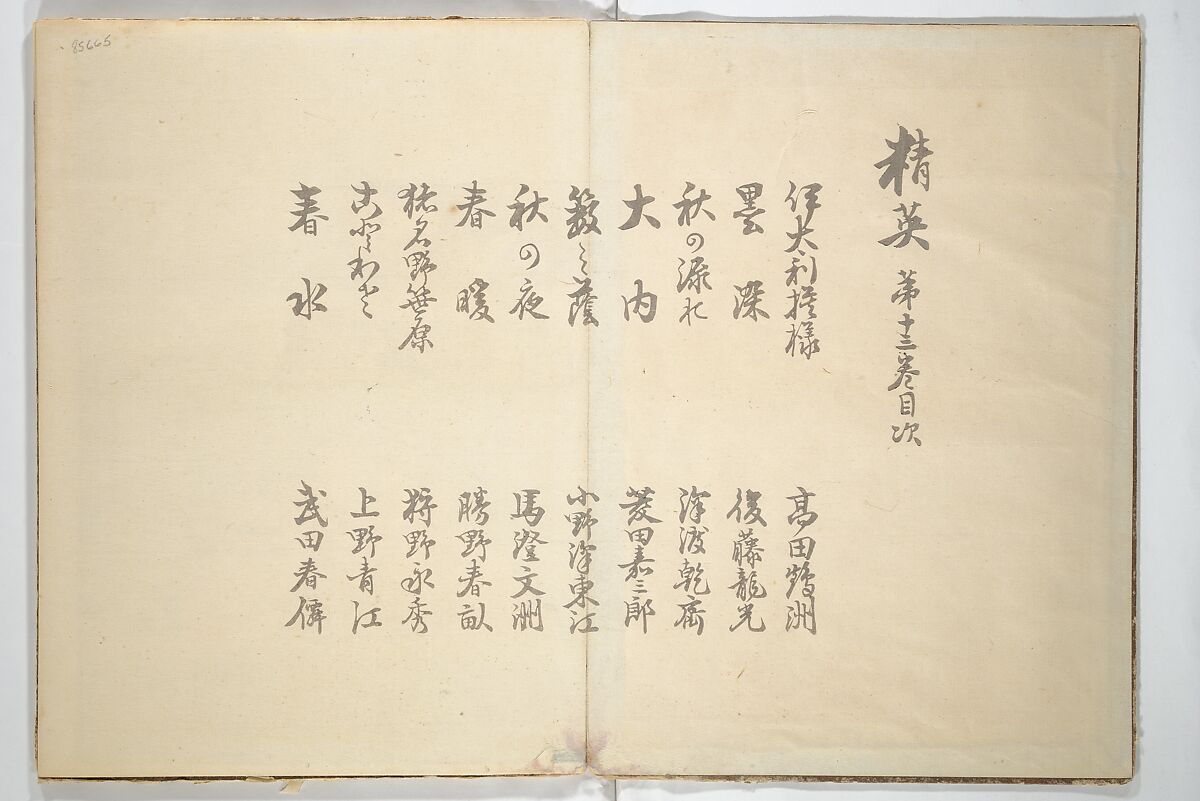 精英 第十三巻目次
伊太利摸様 高田鶴洲
墨染 後藤龍光
秋の流れ 深渡乾齋
大内 菱田嘉三郎
薮之蔭 小野澤東江
秋の夜 馬澄文洲
春暖 勝野春畝
猪名野笹原 狩野永秀
上野青江
春水 武田春僊
85665